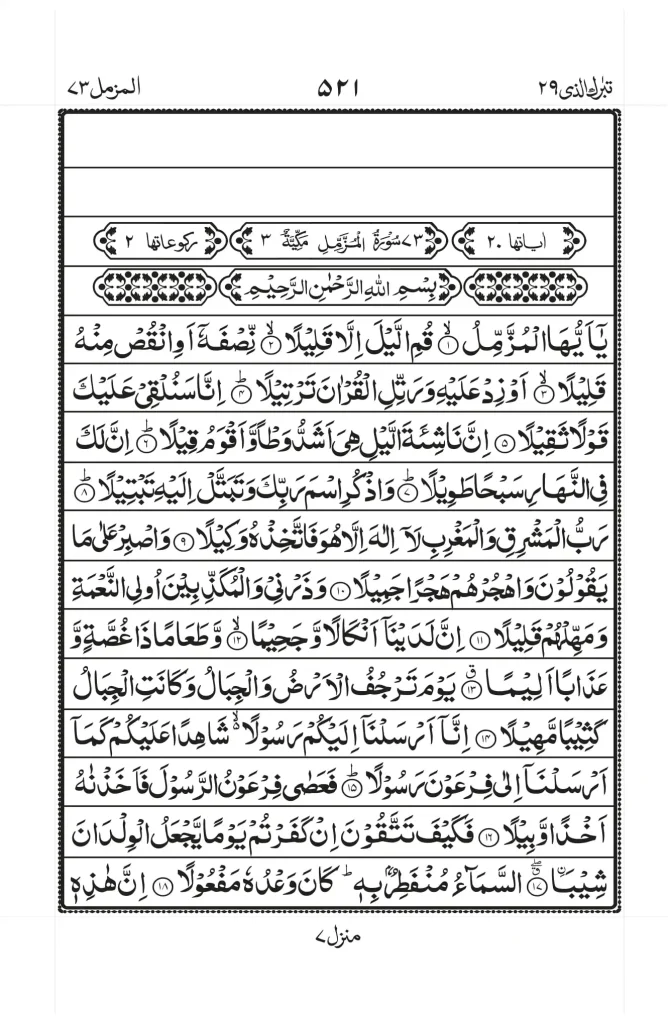 تبٰرك الذی ٢٩ ۵۲۱ المزمل ٧٣
اٰیاتها ٢٠ ٧٣ سُوْرَةُ الْمُزَّمِّلِ مَكِّيَّةٌ ٣ ركوعاتها ٢
بِسْمِ اللّٰهِ الرَّحْمٰنِ الرَّحِيْمِ
يٰۤاَيُّهَا الْمُزَّمِّلُ ۙ‏﴿۱﴾ قُمِ الَّيْلَ اِلَّا قَلِيْلًا ۙ‏﴿۲﴾ نِّصْفَهٗۤ اَوِ انْقُصْ مِنْهُ
قَلِيْلًا ۙ‏﴿۳﴾ اَوْ زِدْ عَلَيْهِ وَ رَتِّلِ الْقُرْاٰنَ تَرْتِيْلًا ؕ‏﴿۴﴾ اِنَّا سَنُلْقِيْ عَلَيْكَ
قَوْلًا ثَقِيْلًا ﴿۵﴾ اِنَّ نَاشِئَةَ الَّيْلِ هِيَ اَشَدُّ وَطْاً وَّ اَقْوَمُ قِيْلًا ؕ‏﴿۶﴾ اِنَّ لَكَ
فِي النَّهَارِ سَبْحًا طَوِيْلًا ؕ‏﴿۷﴾ وَ اذْكُرِ اسْمَ رَبِّكَ وَ تَبَتَّلْ اِلَيْهِ تَبْتِيْلًا ؕ‏﴿۸﴾
رَبُّ الْمَشْرِقِ وَ الْمَغْرِبِ لَاۤ اِلٰهَ اِلَّا هُوَ فَاتَّخِذْهُ وَكِيْلًا ﴿۹﴾ وَ اصْبِرْ عَلٰى مَا
يَقُوْلُوْنَ وَ اهْجُرْهُمْ هَجْرًا جَمِيْلًا ﴿۱۰﴾ وَ ذَرْنِيْ وَ الْمُكَذِّبِيْنَ اُولِي النَّعْمَةِ
وَ مَهِّلْهُمْ قَلِيْلًا ﴿۱۱﴾ اِنَّ لَدَيْنَاۤ اَنْكَالًا وَّ جَحِيْمًا ۙ‏﴿۱۲﴾ وَّ طَعَامًا ذَا غُصَّةٍ وَّ
عَذَابًا اَلِيْمًا ۗ‏﴿۱۳﴾ يَوْمَ تَرْجُفُ الْاَرْضُ وَ الْجِبَالُ وَ كَانَتِ الْجِبَالُ
كَثِيْبًا مَّهِيْلًا ﴿۱۴﴾ اِنَّاۤ اَرْسَلْنَاۤ اِلَيْكُمْ رَسُوْلًا ۙ شَاهِدًا عَلَيْكُمْ كَمَاۤ
اَرْسَلْنَاۤ اِلٰى فِرْعَوْنَ رَسُوْلًا ؕ‏﴿۱۵﴾ فَعَصٰى فِرْعَوْنُ الرَّسُوْلَ فَاَخَذْنٰهُ
اَخْذًا وَّبِيْلًا ﴿۱۶﴾ فَكَيْفَ تَتَّقُوْنَ اِنْ كَفَرْتُمْ يَوْمًا يَّجْعَلُ الْوِلْدَانَ
شِيْبَا ﴿۱۷﴾ اۨلسَّمَآءُ مُنْفَطِرٌۢ بِهٖ ؕ كَانَ وَعْدُهٗ مَفْعُوْلًا ﴿۱۸﴾ اِنَّ هٰذِهٖ
منزل ٧